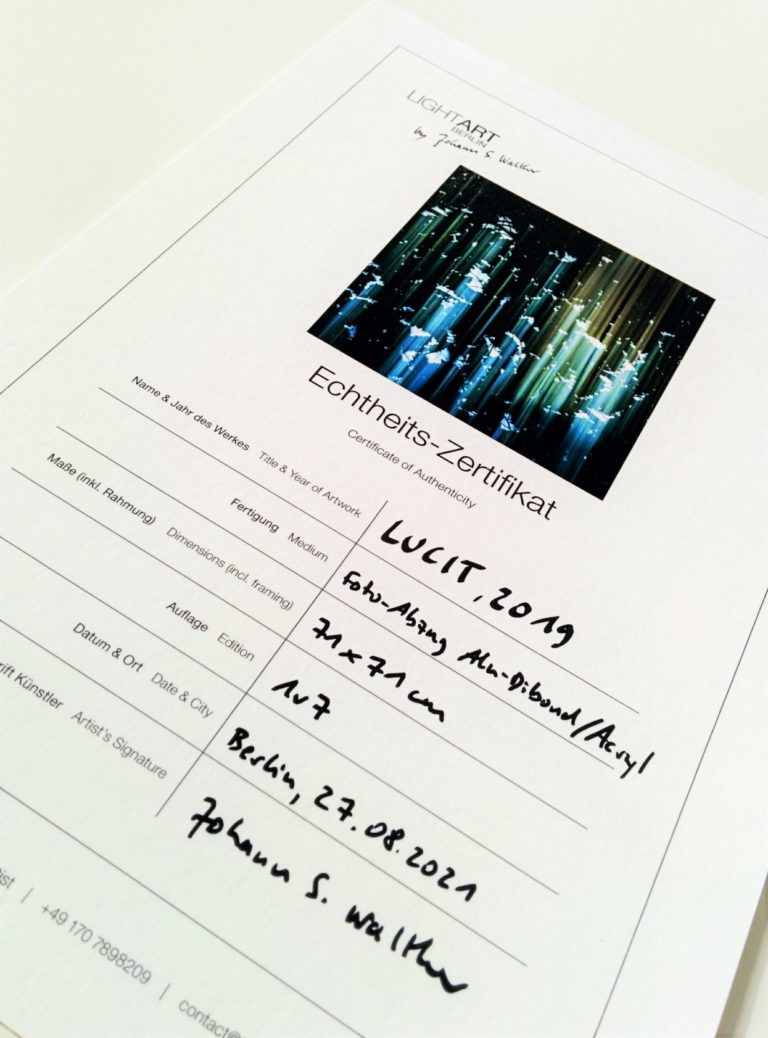 LIGHTART
BERLIN
by Johann S. Walther
Echtheits-Zertifikat
Certificate of Authenticity
Name & Jahr des Werkes Title & Year of Artwork LUCIT, 2019
Fertigung Medium Foto-Abzug Alu-Dibond/Acryl
Maße (inkl. Rahmung) Dimensions (incl. framing) 71 x 71 cm
Auflage Edition 1v7
Datum & Ort Date & City Berlin, 27.08.2021
Künstler Artist's Signature Johann S. Walther
| +49 170 7898209 | contact@